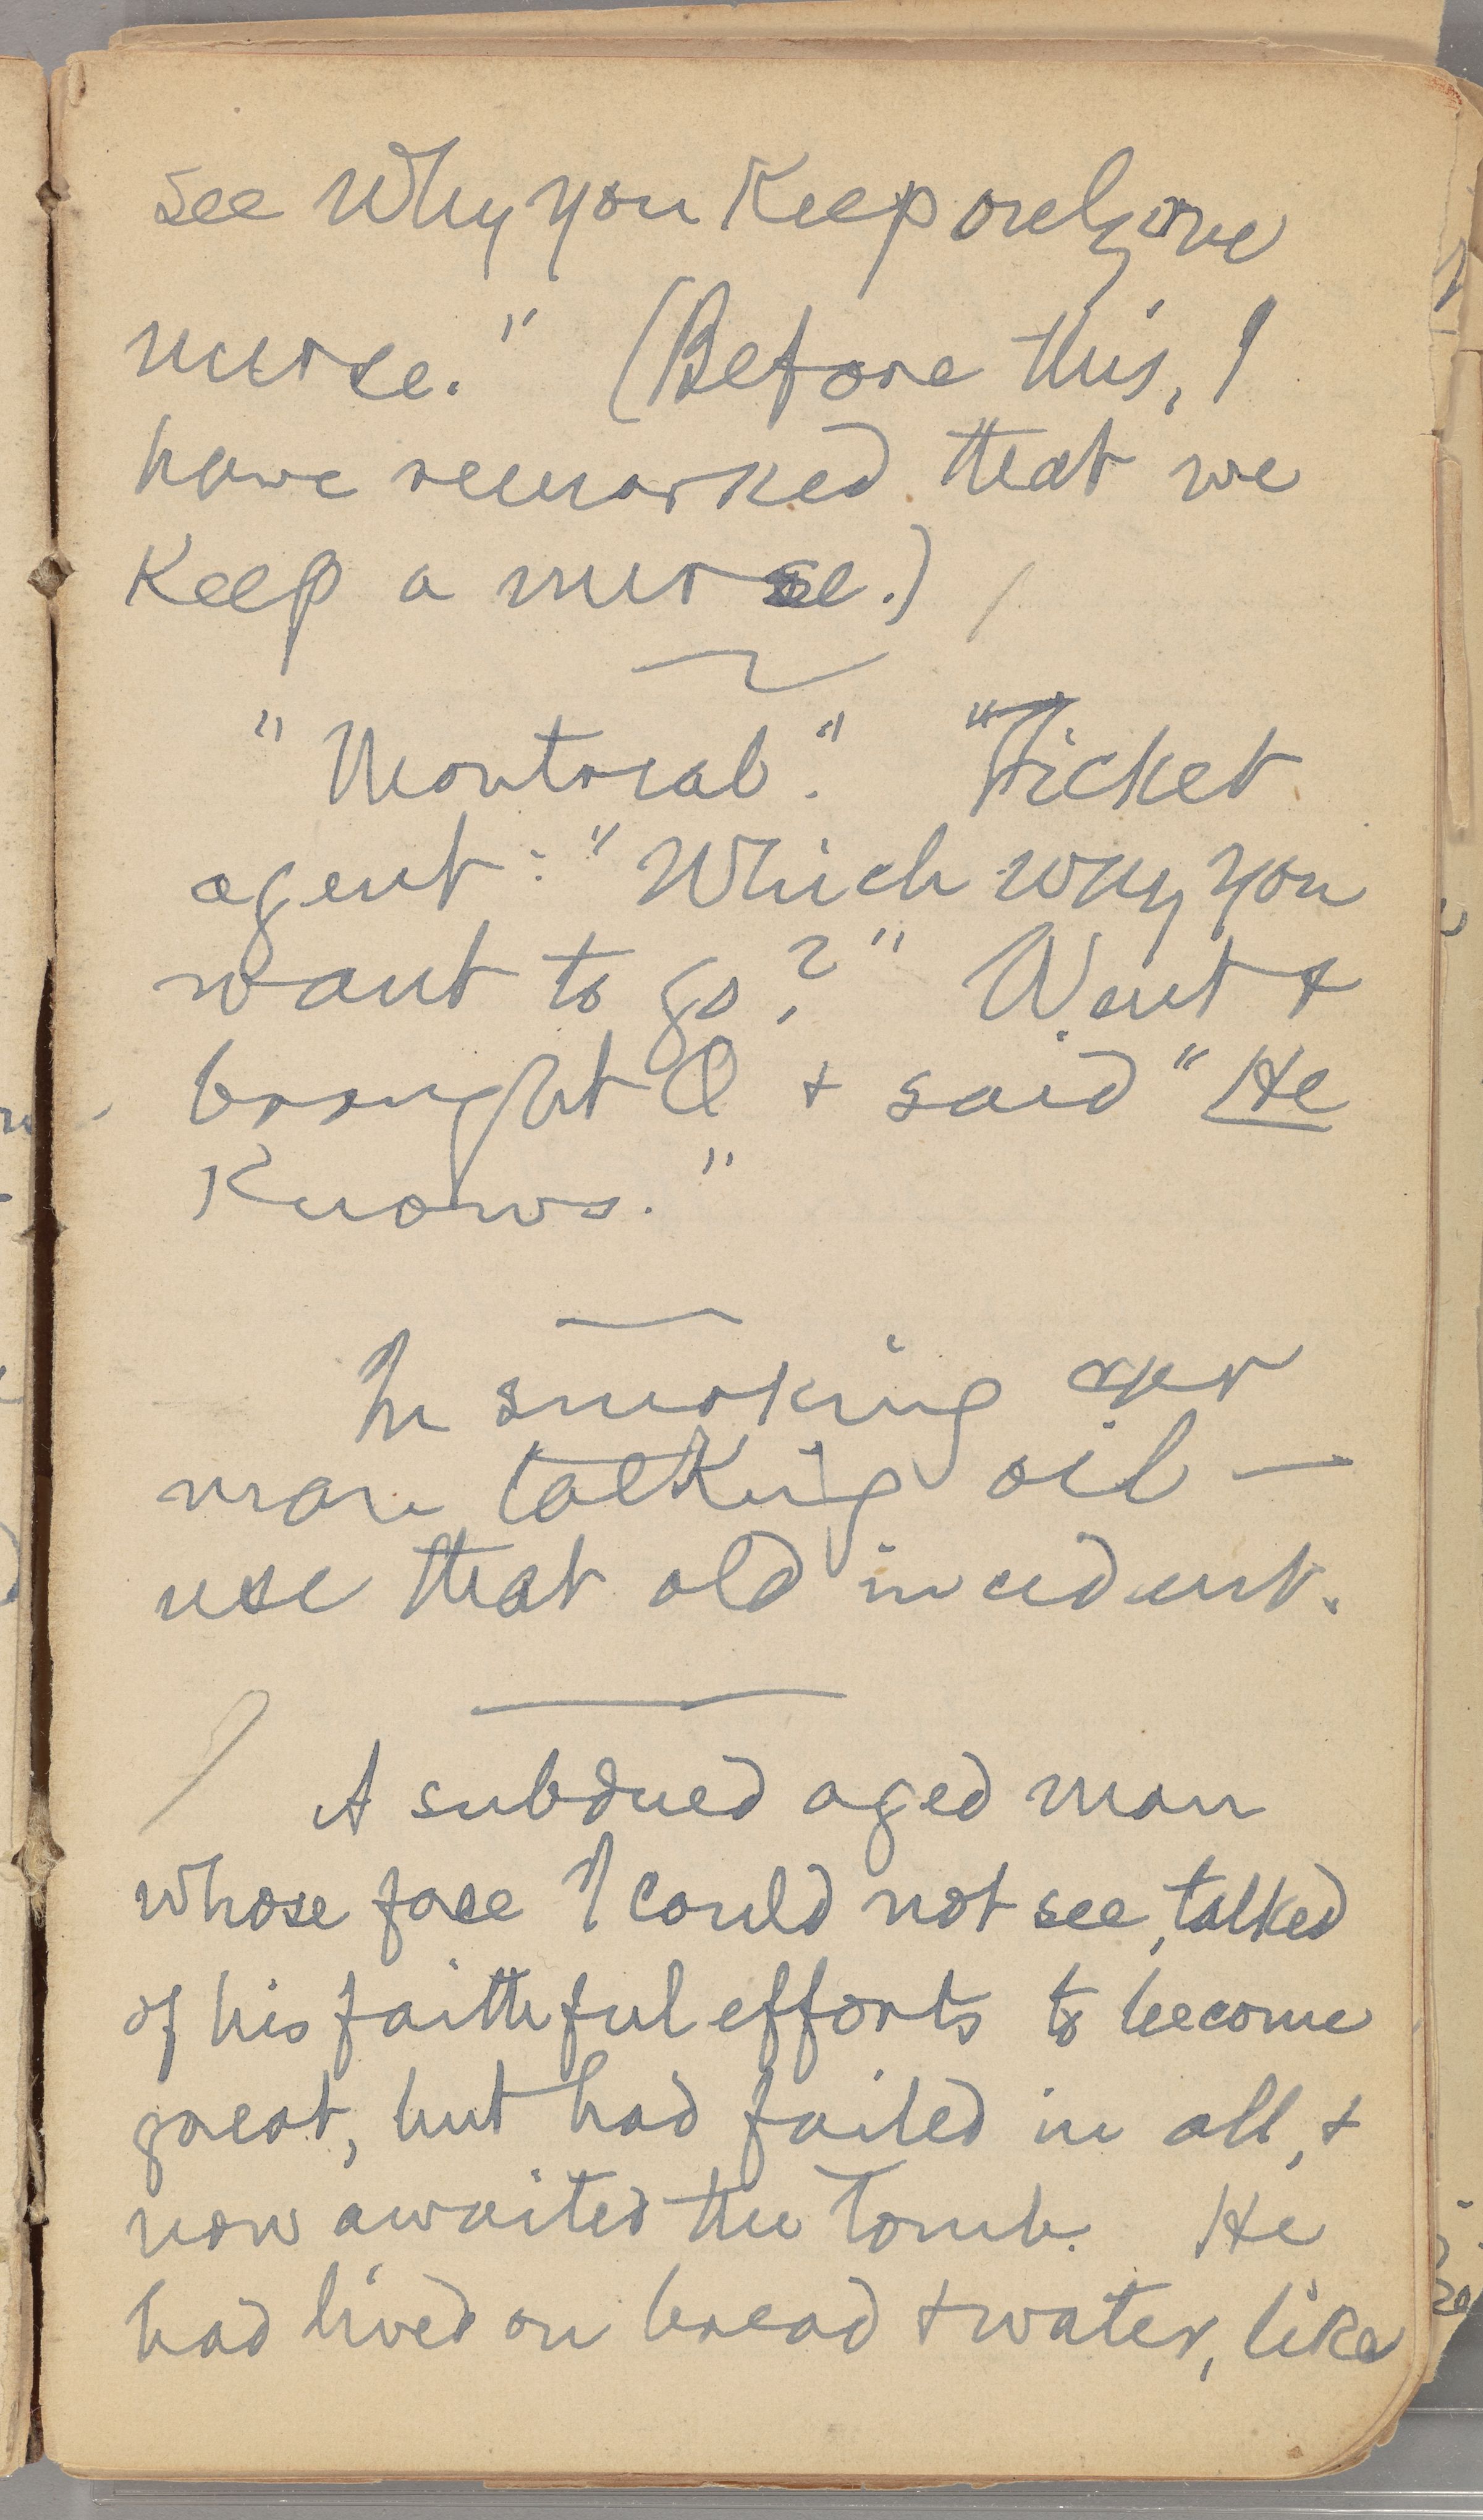 see why you keep only one
nurse." (Before this, I
have remarked that we
keep a nurse.)
"Montreal." "Ticket
agent: "Which way you
want to go?" Went &
brought O & said "He
knows."
In smoking car
man talking oil —
use that old incident.
A subdued aged man
whose face I could not see, talked
of his faithful efforts to become
great, but had failed in all, &
now awaited the tomb. He
had lived on bread & water, like